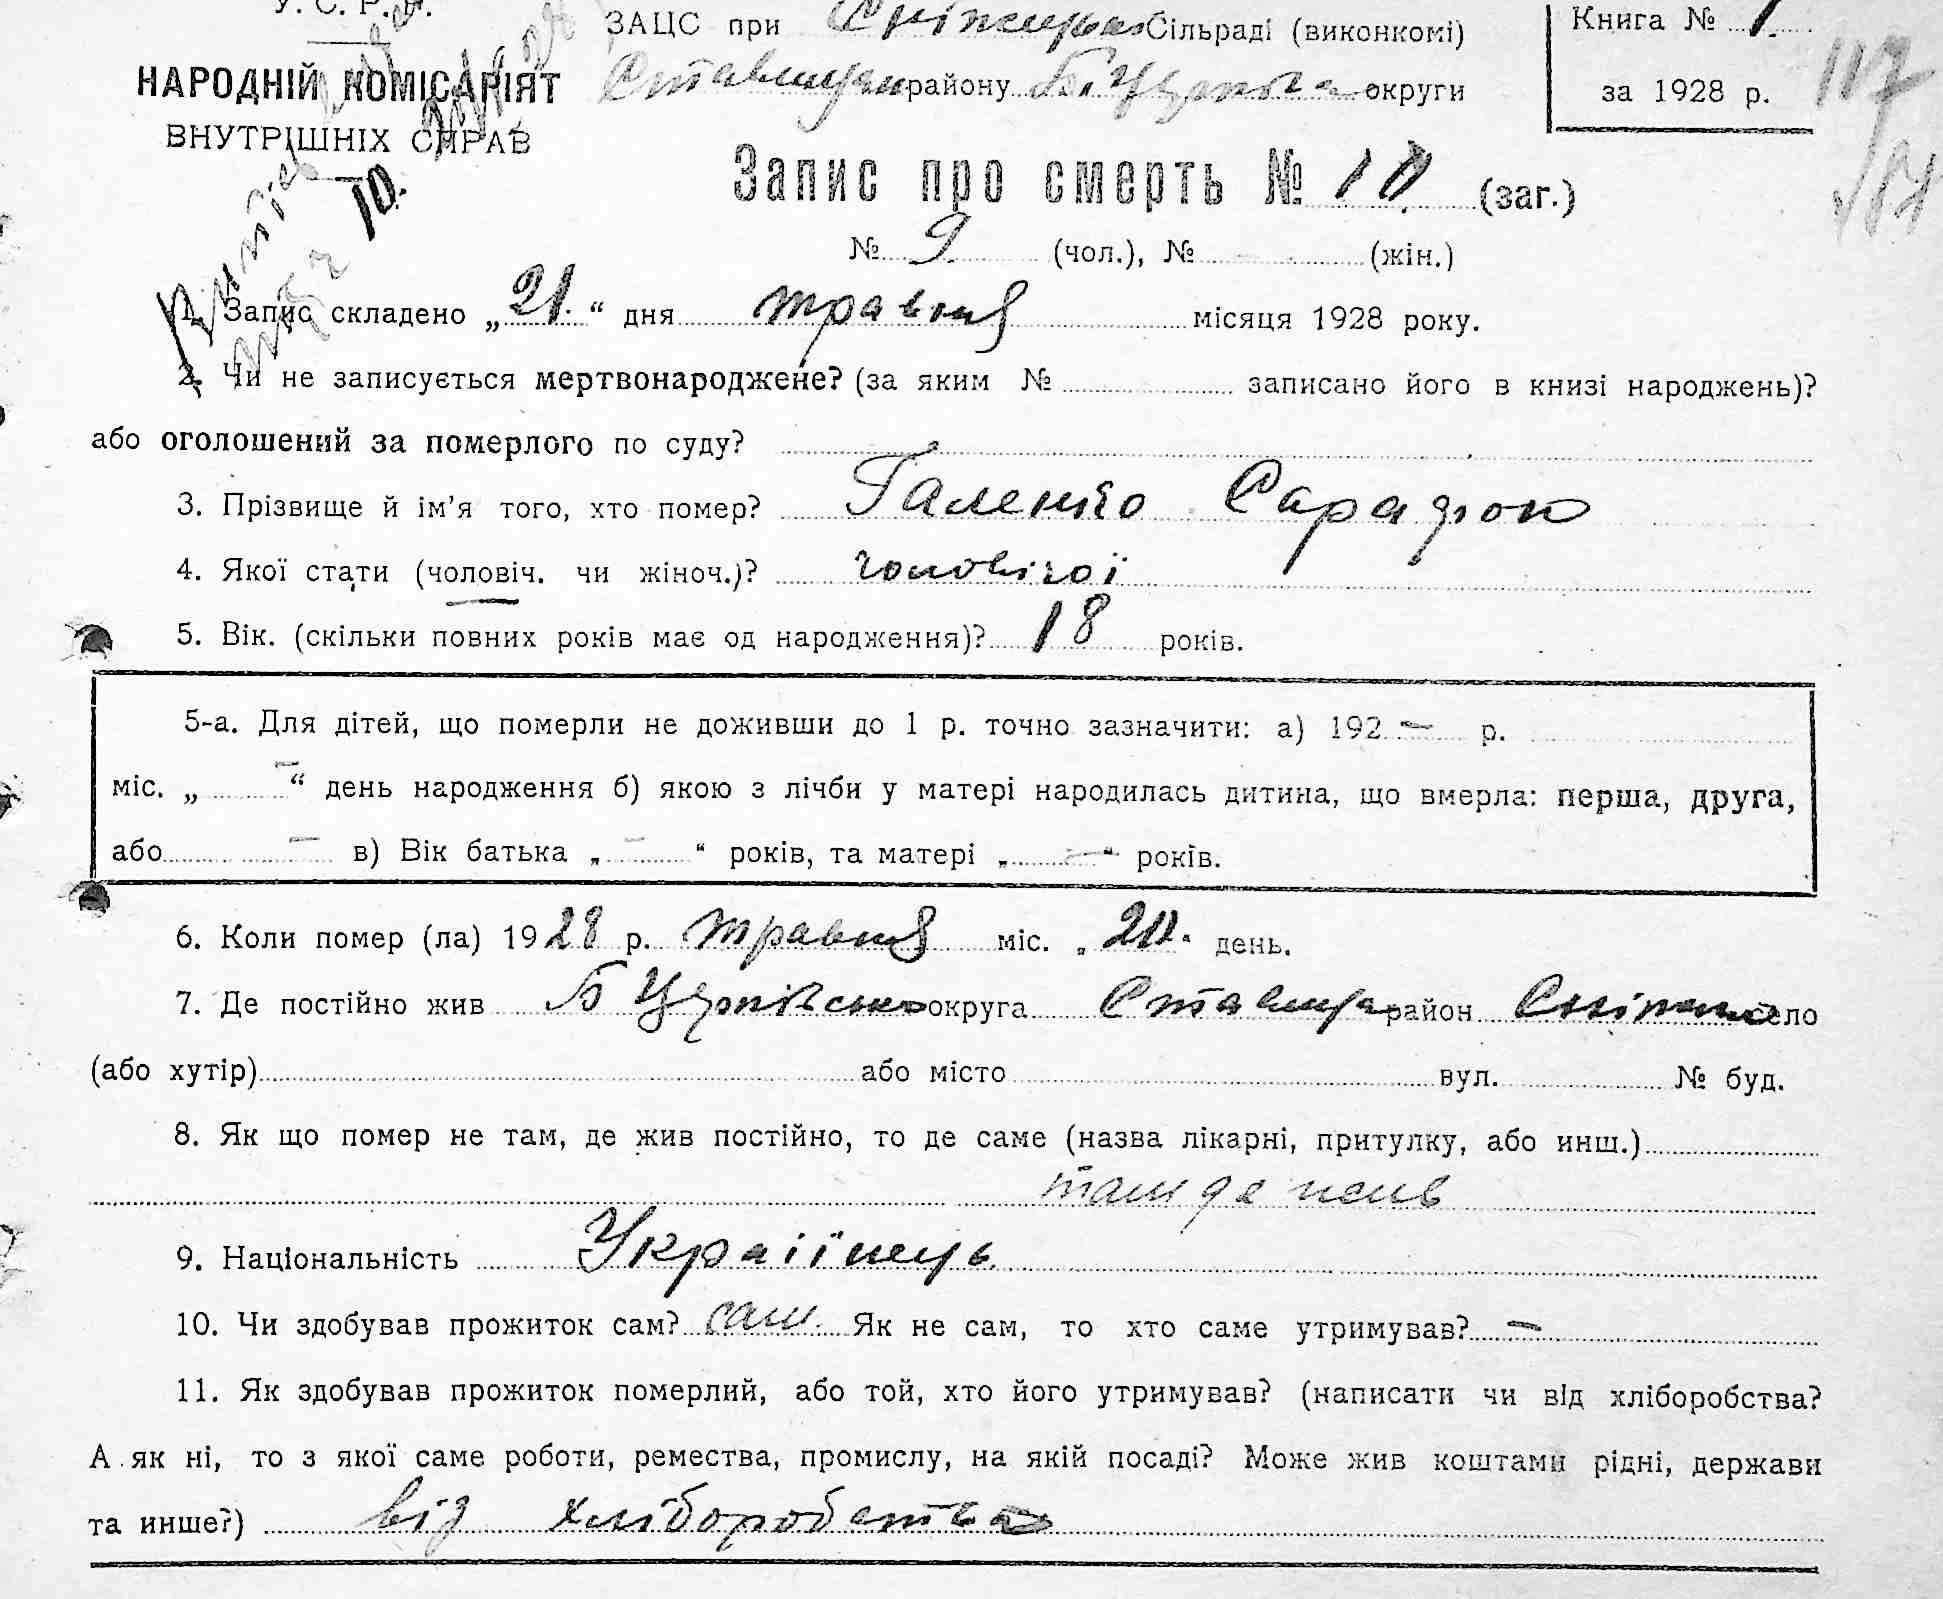 У. С. Р. Р.
НАРОДНІЙ КОМІСАРІЯТ
ВНУТРІШНІХ СПРАВ
ЗАЦС при Сільраді (виконкомі)
району Б. Церков округи
Книга № 1.
за 1928 р.
117
10.
Запис про смерть № 10 (заг.)
№ 9 (чол.), № (жін.)
1. Запис складено „21.“ дня травня місяця 1928 року.
2. Чи не записується мертвонароджене? (за яким № записано його в книзі народжень)?
або оголошений за померлого по суду?
3. Прізвище й ім'я того, хто помер? Галенко Сарафон
4. Якої стати (чоловіч. чи жіноч.)? чоловічої
5. Вік. (скільки повних років має од народження)? 18 років.
5-а. Для дітей, що померли не доживши до 1 р. точно зазначити: а) 192 — р.
міс. „ — “ день народження б) якою з лічби у матері народилась дитина, що вмерла: перша, друга,
або — в) Вік батька „ — “ років, та матері „ — “ років.
6. Коли помер (ла) 1928 р. травня міс. „20.“ день.
7. Де постійно жив Б Церківсько округа Ставища район село
(або хутір) або місто вул. № буд.
8. Як що помер не там, де жив постійно, то де саме (назва лікарні, притулку, або инш.)
там де жив
9. Національність Украіїнець
10. Чи здобував прожиток сам? сам. Як не сам, то хто саме утримував? —
11. Як здобував прожиток померлий, або той, хто його утримував? (написати чи від хліборобства?
А як ні, то з якої саме роботи, ремества, промислу, на якій посаді? Може жив коштами рідні, держави
та инше?) від хліборобства